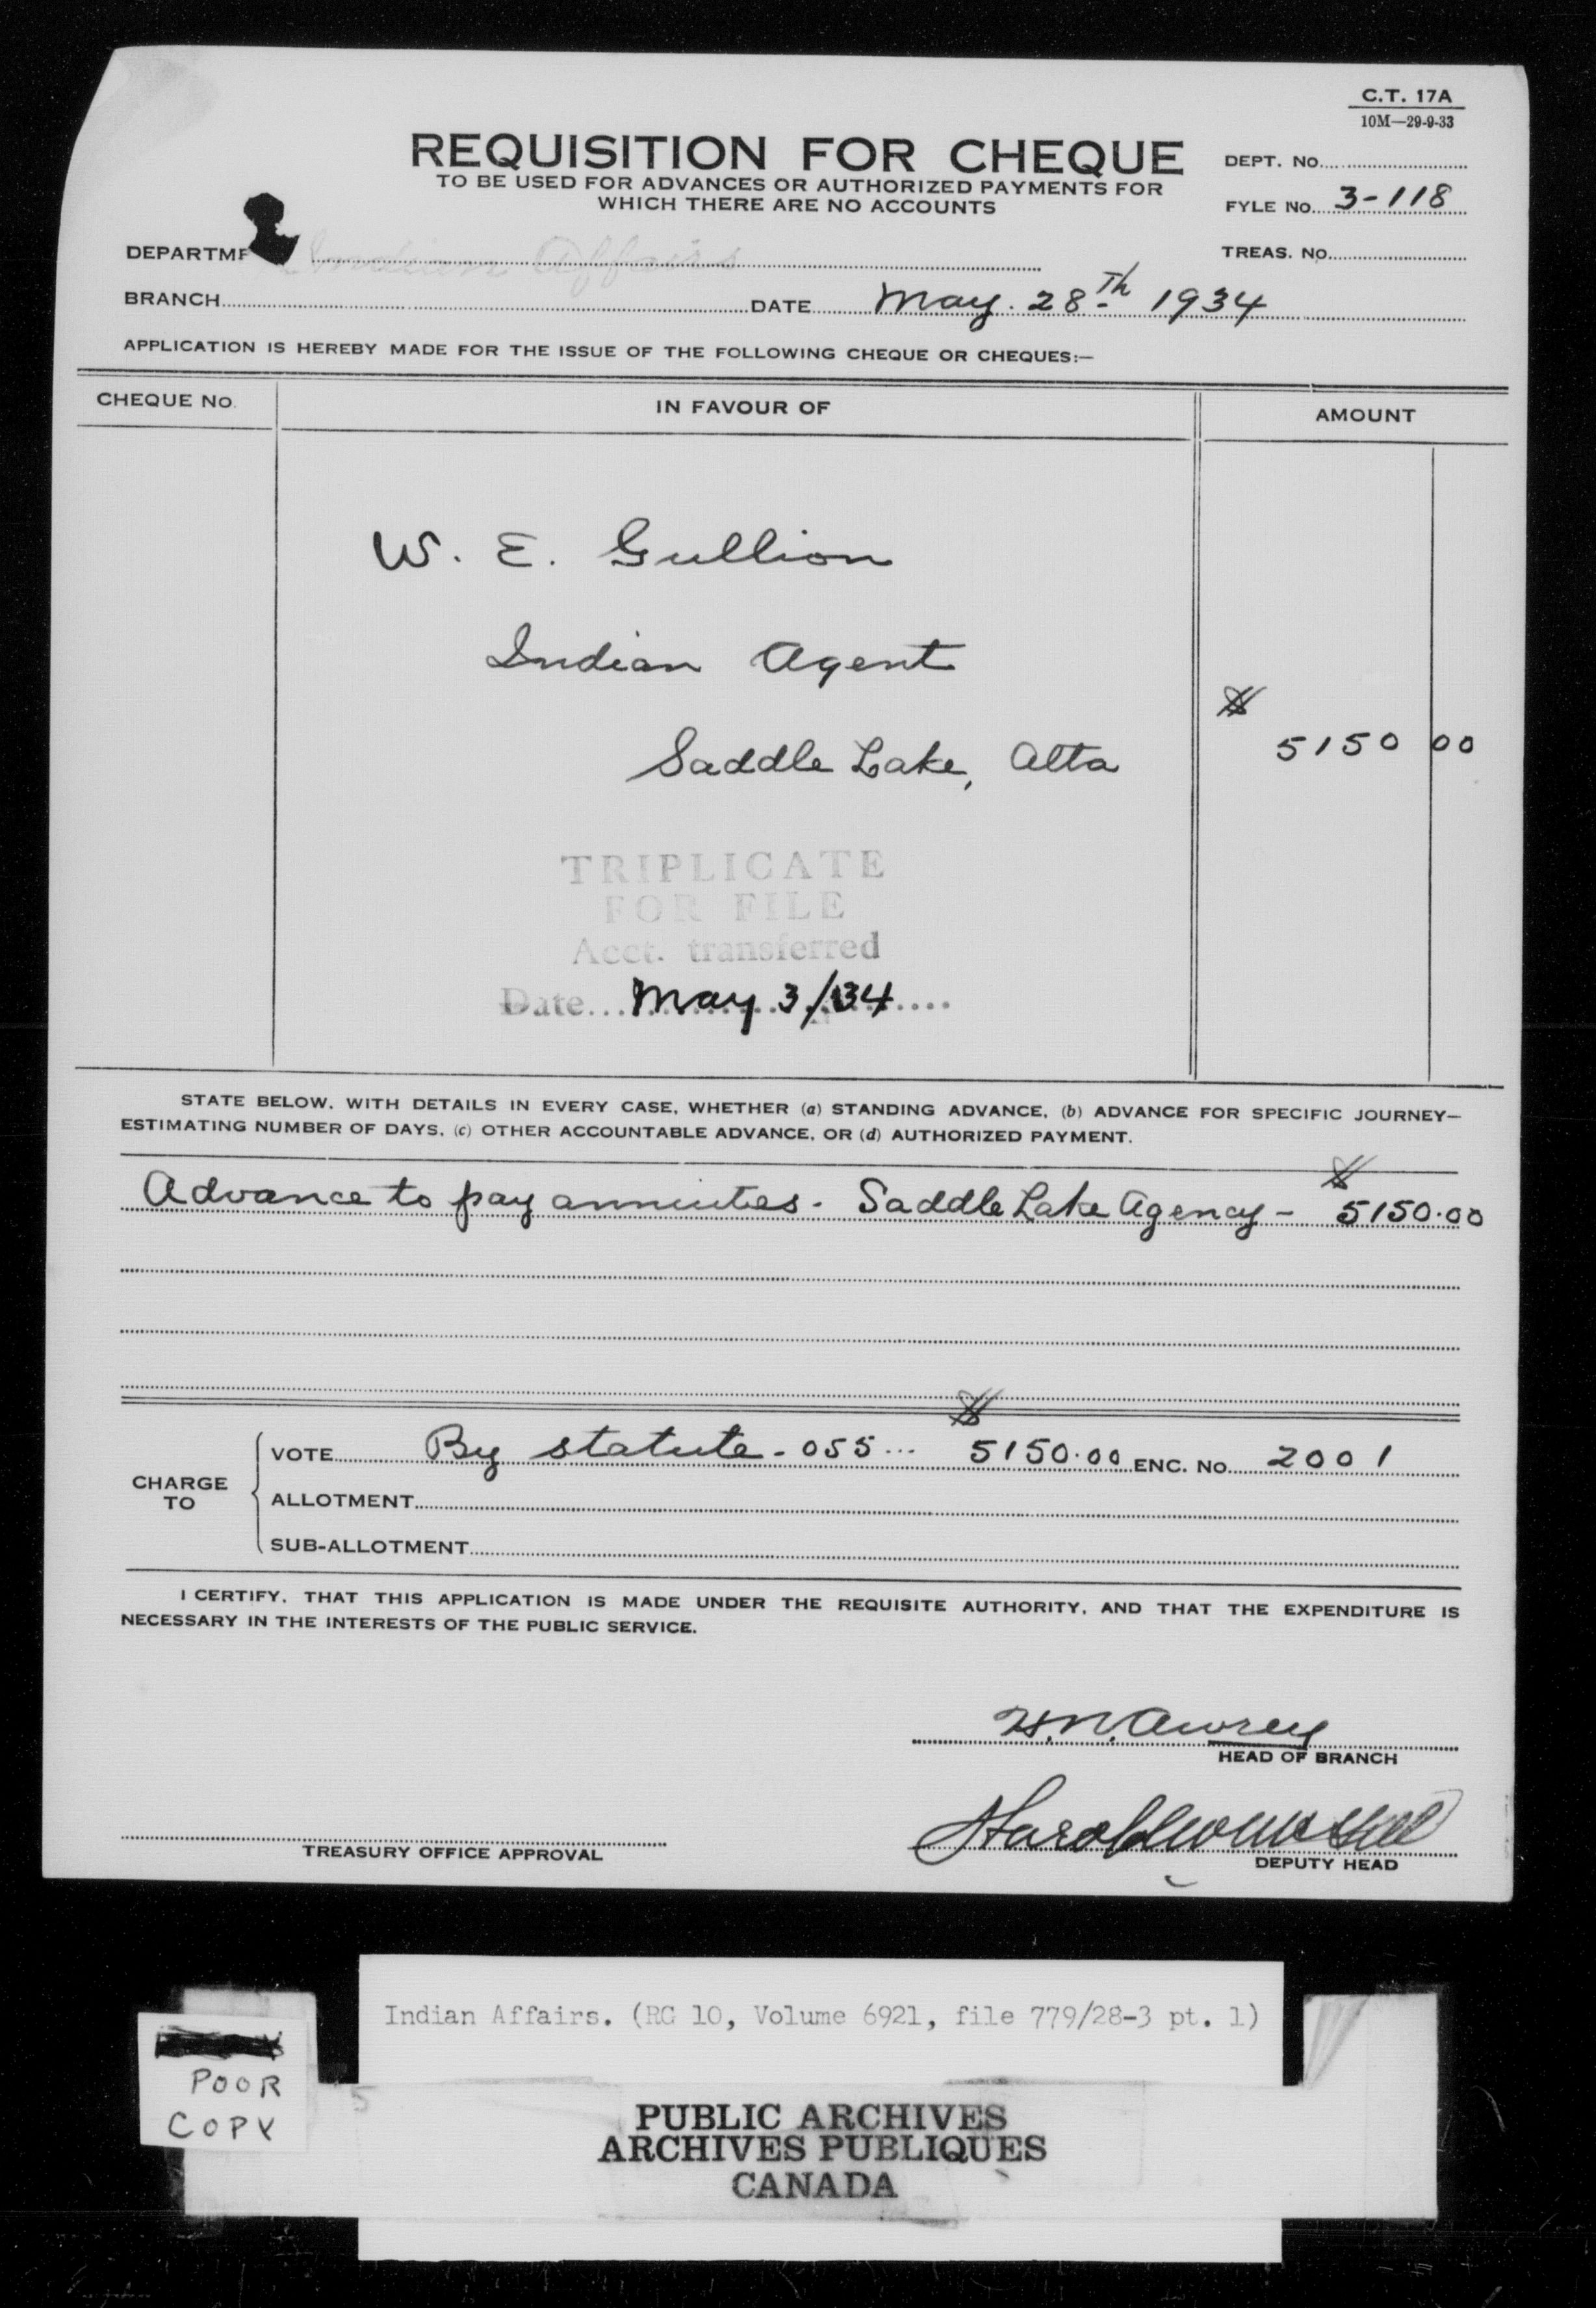 C.T. 17A
10M—29-9-33
REQUISITION FOR CHEQUE
TO BE USED FOR ADVANCES OR AUTHORIZED PAYMENTS FOR
WHICH THERE ARE NO ACCOUNTS
DEPT. No.
FYLE No. 3-118
TREAS. No.
DEPARTME Indian Affairs
BRANCH DATE May. 28th 1934
APPLICATION IS HEREBY MADE FOR THE ISSUE OF THE FOLLOWING CHEQUE OR CHEQUES:—
CHEQUE No. IN FAVOUR OF AMOUNT
W. E. Gullion
Indian Agent
Saddle Lake, Alta
$ 5150 00
TRIPLICATE
FOR FILE
Acct. transferred
Date... May 3/34
STATE BELOW, WITH DETAILS IN EVERY CASE, WHETHER (a) STANDING ADVANCE, (b) ADVANCE FOR SPECIFIC JOURNEY—
ESTIMATING NUMBER OF DAYS, (c) OTHER ACCOUNTABLE ADVANCE, OR (d) AUTHORIZED PAYMENT.
Advance to pay annuities - Saddle Lake Agency - $ 5150.00
CHARGE TO
VOTE By statute - 055... $ 5150.00 ENC. No. 2001
ALLOTMENT
SUB-ALLOTMENT
I CERTIFY, THAT THIS APPLICATION IS MADE UNDER THE REQUISITE AUTHORITY, AND THAT THE EXPENDITURE IS
NECESSARY IN THE INTERESTS OF THE PUBLIC SERVICE.
H.N. Awrey
HEAD OF BRANCH
Harold W McGill
DEPUTY HEAD
TREASURY OFFICE APPROVAL
Indian Affairs. (RG 10, Volume 6921, file 779/28-3 pt. 1)
POOR
COPY
PUBLIC ARCHIVES
ARCHIVES PUBLIQUES
CANADA